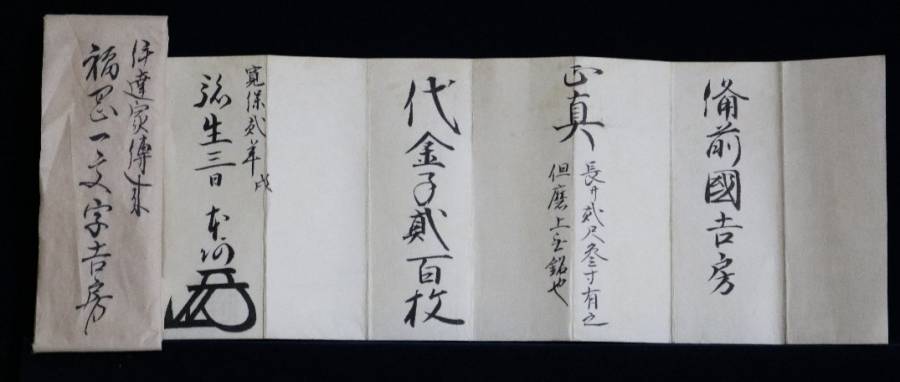 備前國吉房
正真
長サ貳尺叄寸有之
但磨上無銘也
代金子貳百枚
寛保貳年戌
弥生三日
本阿
伊達家傳来
福岡一文字吉房